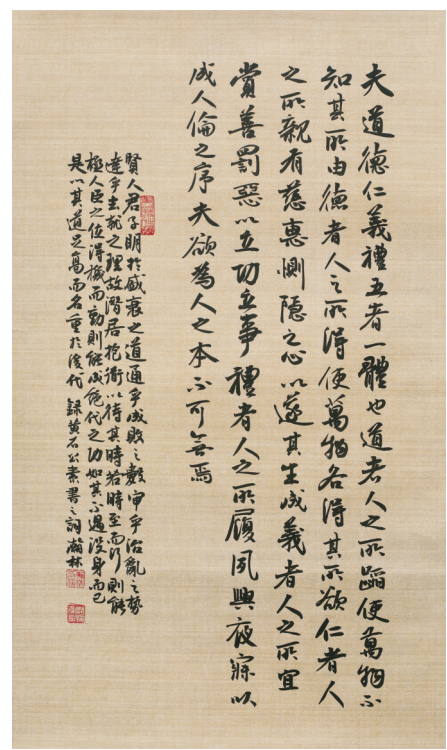 夫道德仁義禮五者一體也道者人之所蹈使萬物不
知其所由德者人之所得使萬物各得其所欲仁者人
之所親有慈惠惻隱之心以遂其生成義者人之所宜
賞善罰惡以立功立事禮者人之所履夙興夜寐以
成人倫之序夫欲為人之本不可無焉
賢人君子明於盛衰之道通乎成敗之數審乎治亂之勢
達乎去就之理故潛居抱道以待其時若時至而行則能
極人臣之位得機而動則能成絕代之功如其不遇沒身而已
是以其道足高而名重於後代 錄黃石公素書之詞 瀚林